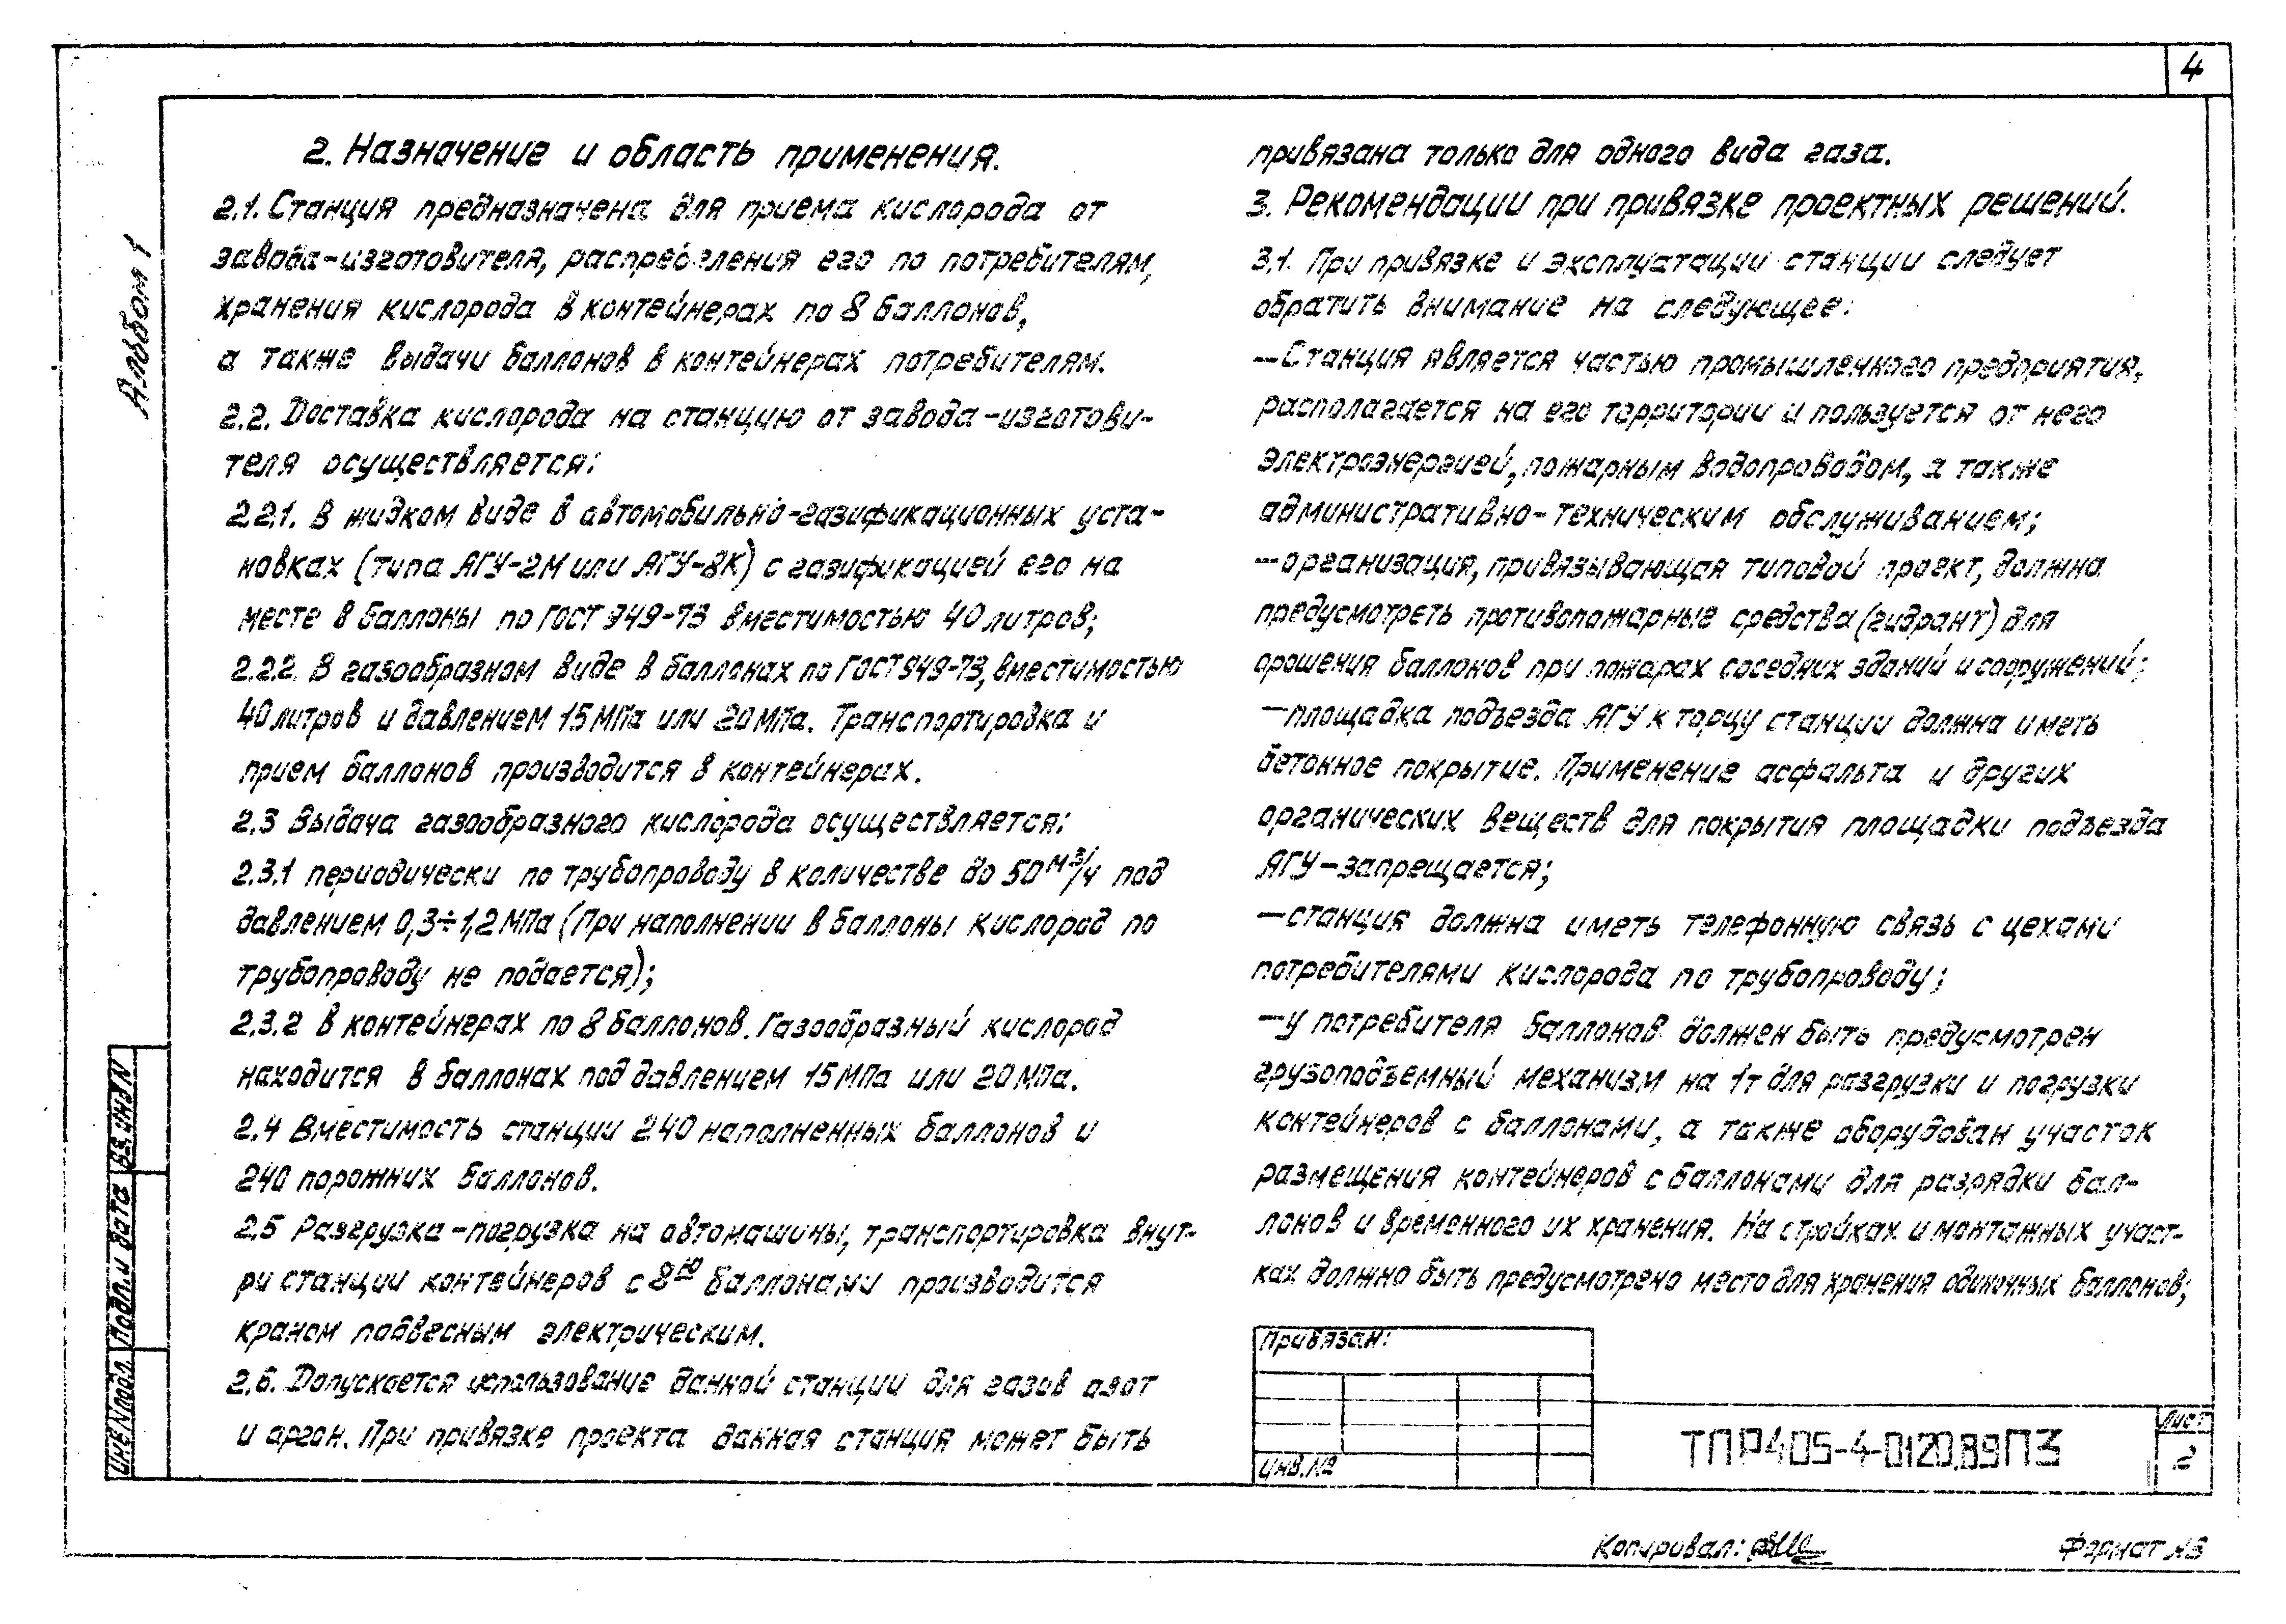 4
Альбом 1
2. Назначение и область применения.
2.1. Станция предназначена для приема кислорода от
завода-изготовителя, распределения его по потребителям,
хранения кислорода в контейнерах по 8 баллонов,
а также выдачи баллонов в контейнерах потребителям.
2.2. Доставка кислорода на станцию от завода-изготови-
теля осуществляется:
2.2.1. В жидком виде в автомобильно-газификационных уста-
новках (типа АГУ-2М или АГУ-8К) с газификацией его на
месте в баллоны по ГОСТ 949-73 вместимостью 40 литров;
2.2.2. В газообразном виде в баллонах по ГОСТ 949-73, вместимостью
40 литров и давлением 15 МПа или 20 МПа. Транспортировка и
прием баллонов производится в контейнерах.
2.3 Выдача газообразного кислорода осуществляется:
2.3.1 периодически по трубопроводу в количестве до 50 м³/ч под
давлением 0,3÷1,2 МПа (При наполнении в баллоны кислород по
трубопроводу не подается);
2.3.2 в контейнерах по 8 баллонов. Газообразный кислород
находится в баллонах под давлением 15 МПа или 20 МПа.
2.4 Вместимость станции 240 наполненных баллонов и
240 порожних баллонов.
2.5 Разгрузка-погрузка на автомашины, транспортировка внут-
ри станции контейнеров с 8ю баллонами производится
краном подвесным электрическим.
2.6. Допускается использование данной станции для газов азот
и аргон. При привязке проекта данная станция может быть
привязана только для одного вида газа.
3. Рекомендации при привязке проектных решений.
3.1. При привязке и эксплуатации станции следует
обратить внимание на следующее:
—Станция является частью промышленного предприятия,
располагается на его территории и пользуется от него
электроэнергией, пожарным водопроводом, а также
административно-техническим обслуживанием;
—организация, привязывающая типовой проект, должна
предусмотреть противопожарные средства (гидрант) для
орошения баллонов при пожарах соседних зданий и сооружений;
—площадка подъезда АГУ к торцу станции должна иметь
бетонное покрытие. Применение асфальта и других
органических веществ для покрытия площадки подъезда
АГУ-запрещается;
—станция должна иметь телефонную связь с цехами
потребителями кислорода по трубопроводу;
—у потребителя баллонов должен быть предусмотрен
грузоподъемный механизм на 1т для разгрузки и погрузки
контейнеров с баллонами, а также оборудован участок
размещения контейнеров с баллонами для разрядки бал-
лонов и временного их хранения. На стройках и монтажных участ-
ках должно быть предусмотрено место для хранения одиночных баллонов;
Привязан:
Инв.№
ТПР405-4-0120.89ПЗ
Лист
2
Инв N подл. Подп. и дата Вз. инв N
Копировал:
Формат А3